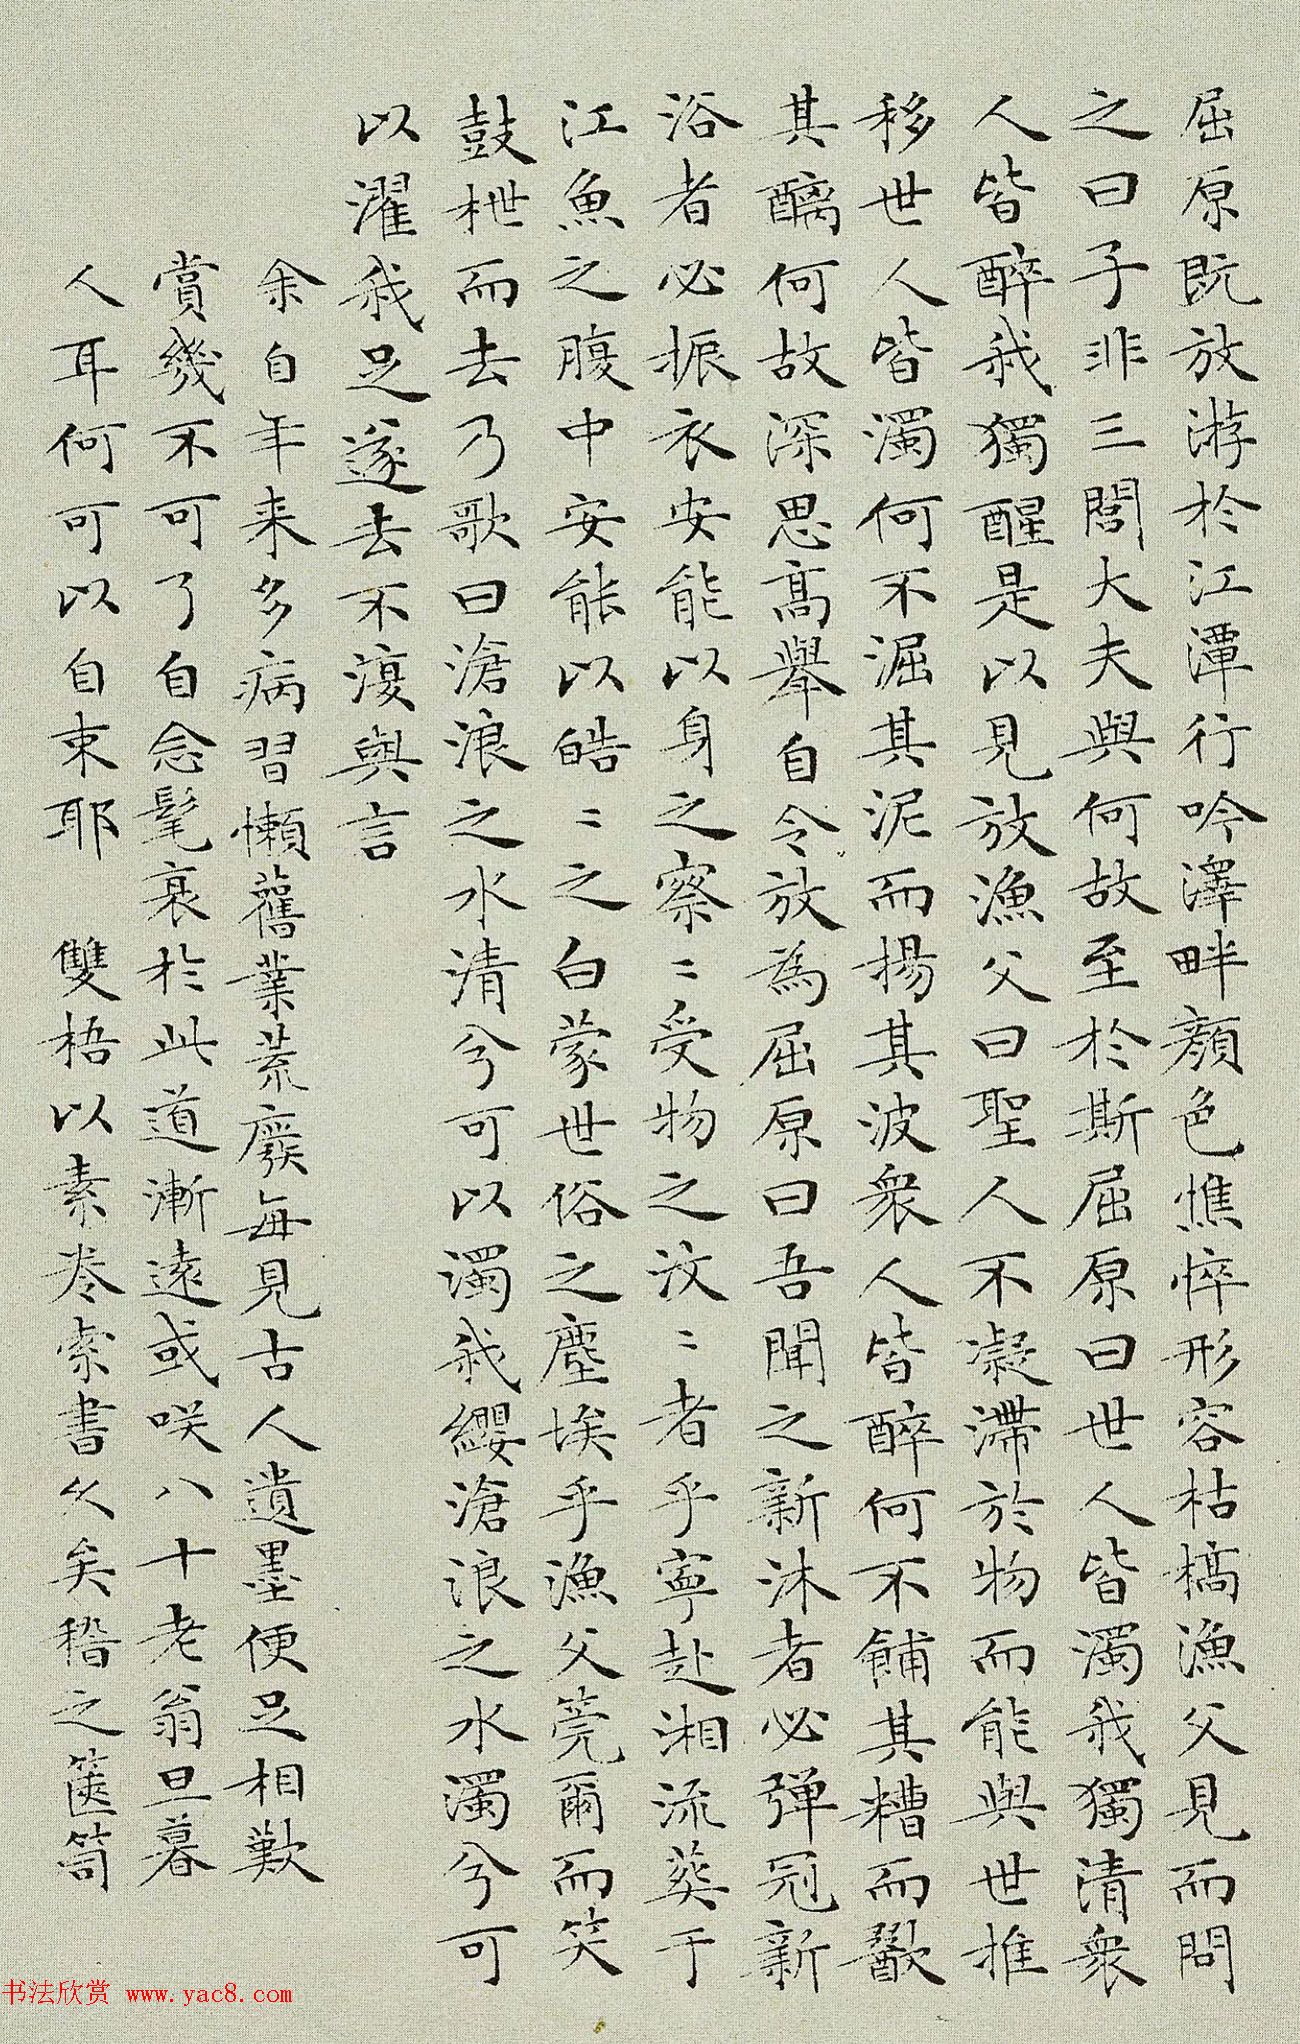 屈原既放游於江潭行吟澤畔顏色憔悴形容枯槁漁父見而問
之曰子非三閭大夫與何故至於斯屈原曰世人皆濁我獨清衆
人皆醉我獨醒是以見放漁父曰聖人不凝滯於物而能與世推
移世人皆濁何不淈其泥而揚其波衆人皆醉何不餔其糟而歠
其醨何故深思高舉自令放為屈原曰吾聞之新沐者必彈冠新
浴者必振衣安能以身之察〻受物之汶〻者乎寧赴湘流葬于
江魚之腹中安能以皓〻之白蒙世俗之塵埃乎漁父莞爾而笑
鼓枻而去乃歌曰滄浪之水清兮可以濁我纓滄浪之水濁兮可
以濯我足遂去不復與言
余自年来多病習懶舊業荒廢每見古人遺墨便足相歎
賞幾不可了自念髦衰於此道漸遠或咲八十老翁旦暮
人耳何可以自束耶 雙梧以素卷索書久矣稽之篋笥
书法欣赏 www.yac8.com